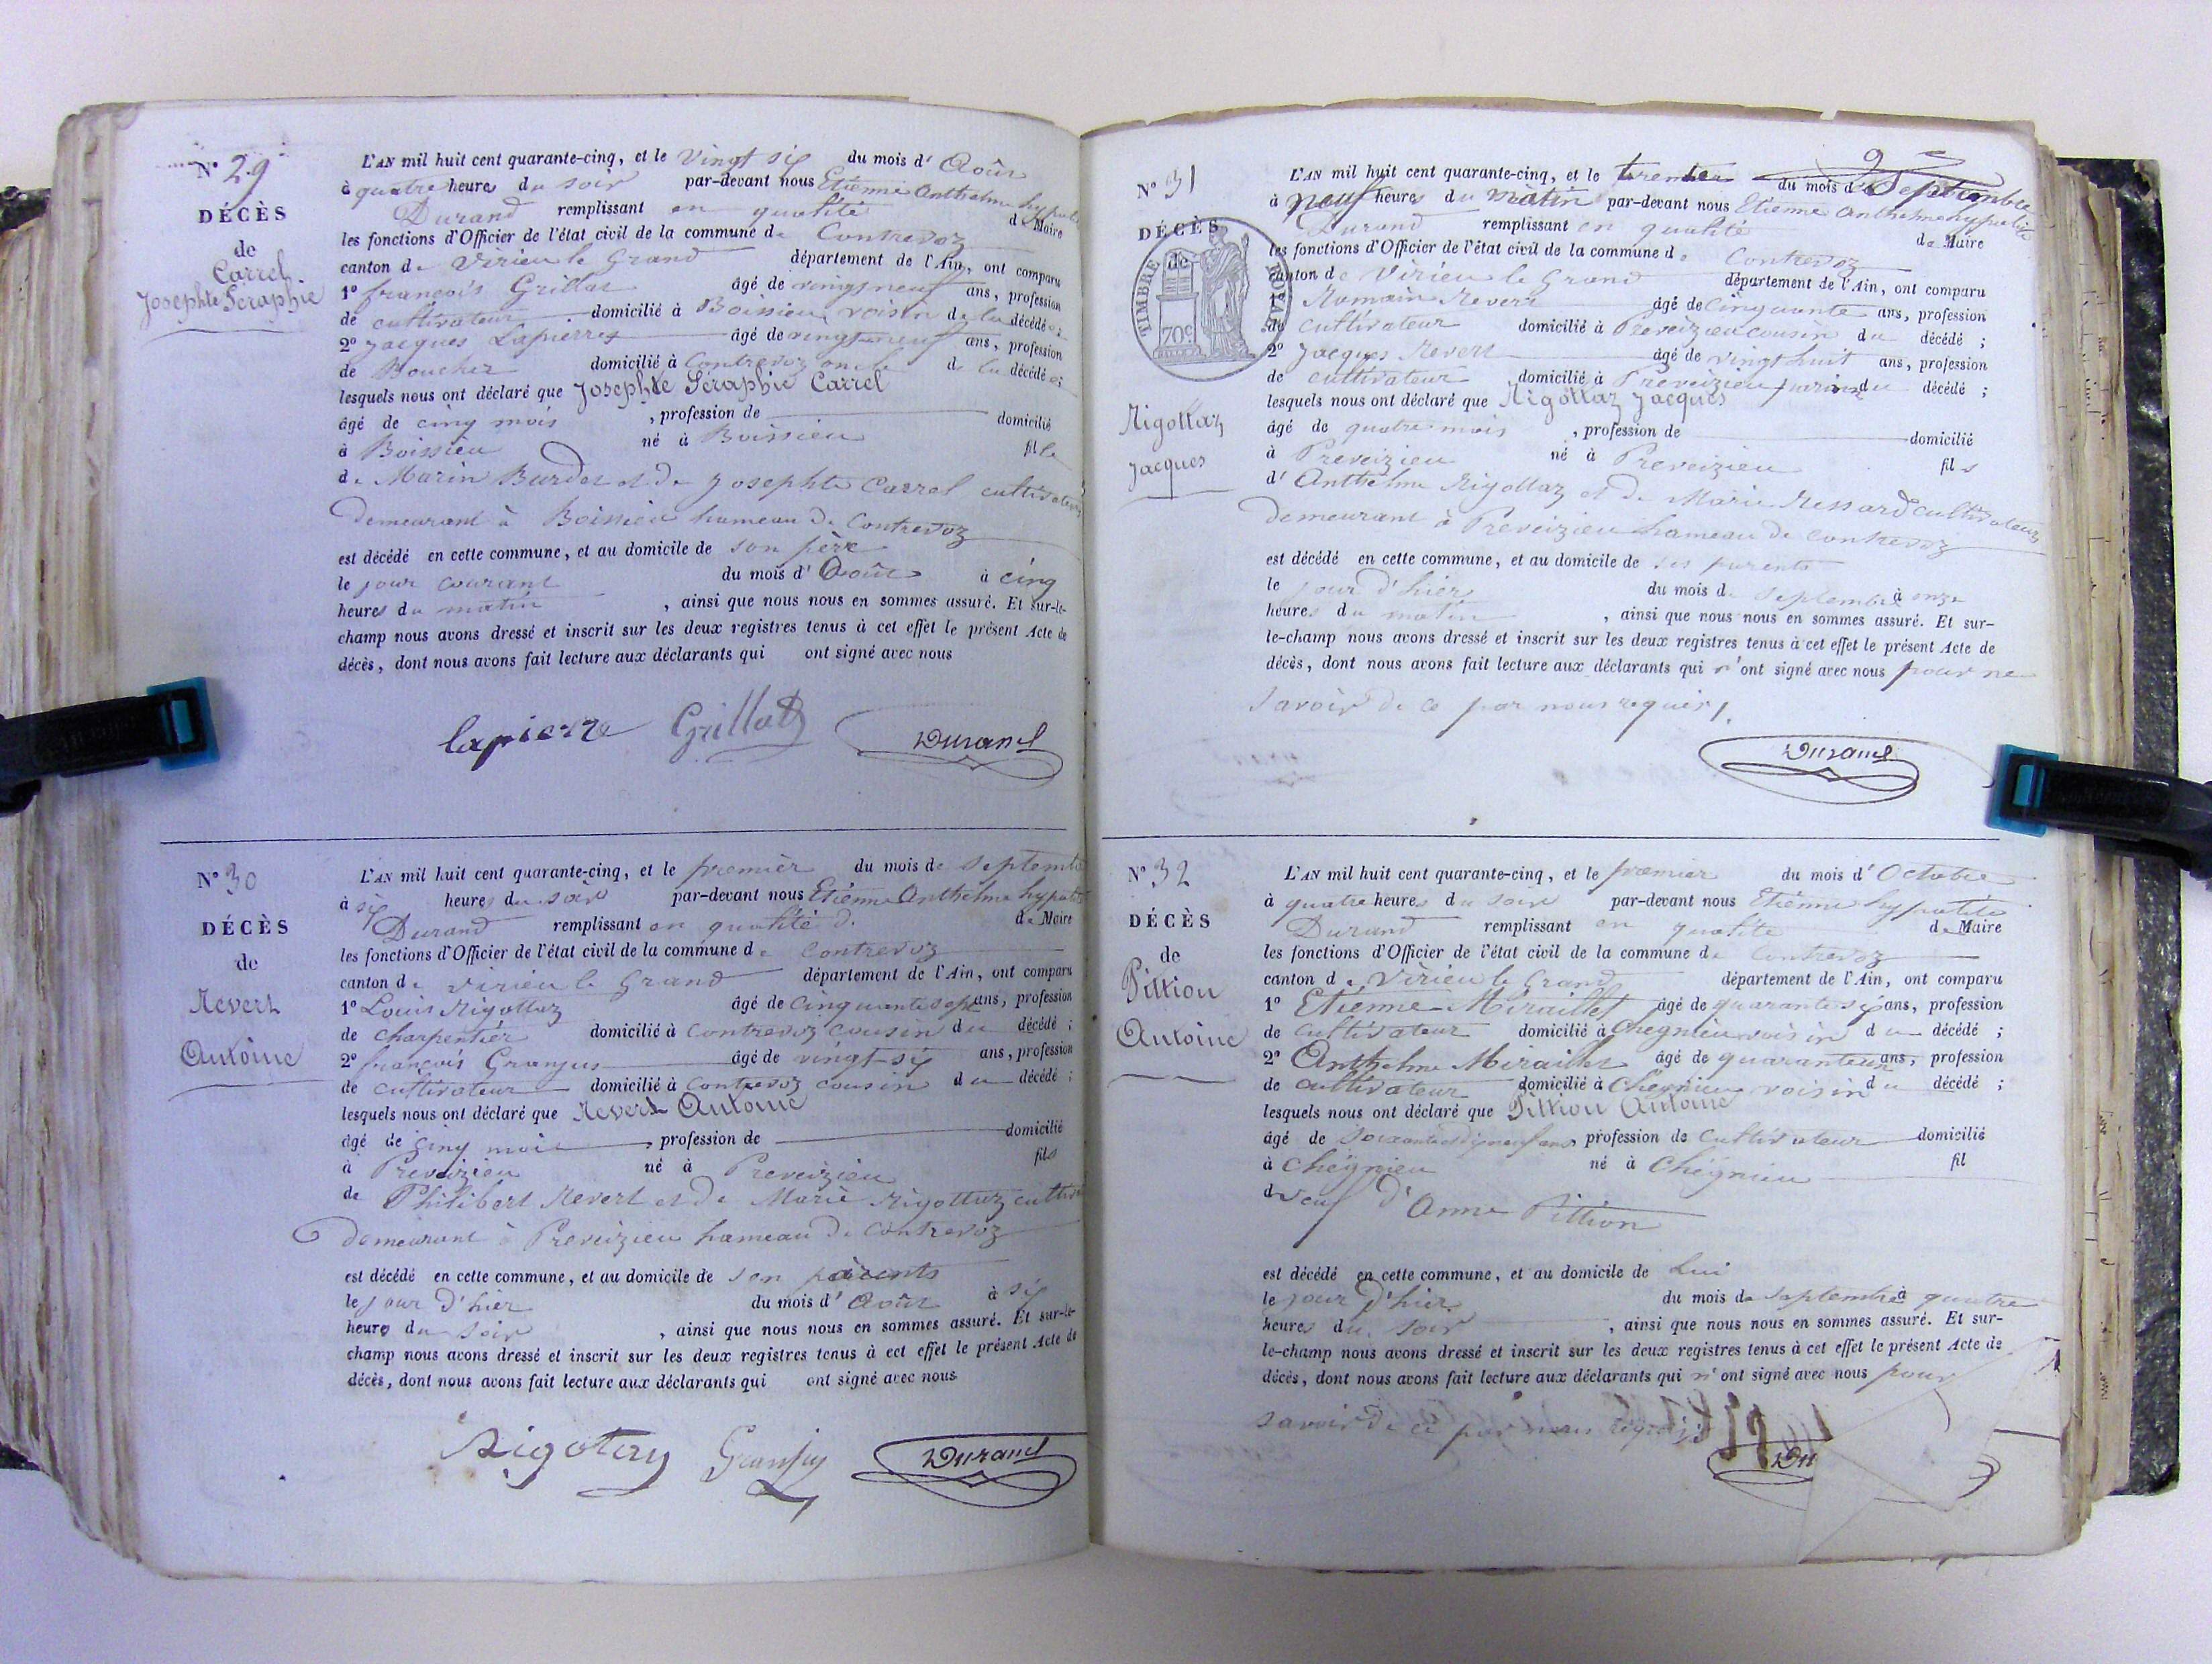 N° 29
DÉCÈS
de
Carrel
Josephte Séraphie
L'AN mil huit cent quarante-cinq, et le vingt six du mois d' Août
à quatre heures du soir par-devant nous Etienne Anthelme hypolite
Durand remplissant en qualité de Maire
les fonctions d'Officier de l'état civil de la commune de Contrevoz
canton de Virieu le Grand département de l'Ain, ont comparu
1° françois Grillat âgé de vingt neuf ans, profession
de cultivateur domicilié à Boissieu voisin de la décédée;
2° Jacques Lapierre âgé de vingt neuf ans, profession
de Boucher domicilié à Contrevoz oncle de la décédée;
lesquels nous ont déclaré que Josephte Séraphie Carrel
âgé de cinq mois, profession de domicilié
à Boissieu né à Boissieu fille
de Marin Burdet et de Josephte Carrel cultivateurs
demeurant à Boissieu hameau de Contrevoz
est décédé en cette commune, et au domicile de son père
le jour courant du mois d' Août à cinq
heures du matin, ainsi que nous nous en sommes assuré. Et sur-le-
champ nous avons dressé et inscrit sur les deux registres tenus à cet effet le présent Acte de
décès, dont nous avons fait lecture aux déclarants qui ont signé avec nous
lapierre Grillat Durand
N° 30
DÉCÈS
de
Revert
Antoine
L'AN mil huit cent quarante-cinq, et le premier du mois de septembre
à six heures du soir par-devant nous Etienne Anthelme hypolite
Durand remplissant en qualité d. de Maire
les fonctions d'Officier de l'état civil de la commune de Contrevoz
canton de Virieu le Grand département de l'Ain, ont comparu
1° Louis Rigottaz âgé de cinquante sept ans, profession
de charpentier domicilié à Contrevoz cousin du décédé;
2° françois Granjus âgé de vingt-six ans, profession
de cultivateur domicilié à Contrevoz cousin du décédé;
lesquels nous ont déclaré que Revert Antoine
âgé de cinq mois, profession de domicilié
à Preveizieu né à Preveizieu fils
de Philibert Revert et de Marie Rigottaz
demeurant à Preveizieu hameau de Contrevoz
est décédé en cette commune, et au domicile de son parents
le jour d'hier du mois d' Août à six
heures du soir, ainsi que nous nous en sommes assuré. Et sur-le-
champ nous avons dressé et inscrit sur les deux registres tenus à cet effet le présent Acte de
décès, dont nous avons fait lecture aux déclarants qui ont signé avec nous
Rigotay Granjus Durand
N° 31
DÉCÈS
de
TIMBRE ROYAL
70c
Rigottaz
Jacques
L'AN mil huit cent quarante-cinq, et le du mois de Septembre
à neuf heures du matin par-devant nous Etienne Anthelme hypolite
Durand remplissant en qualité de Maire
les fonctions d'Officier de l'état civil de la commune de Contrevoz
canton de Virieu le Grand département de l'Ain, ont comparu
Romain Revert âgé de cinquante ans, profession
de cultivateur domicilié à Preveizieu cousin du décédé;
2° Jacques Revert âgé de vingt huit ans, profession
de cultivateur domicilié à Preveizieu du décédé;
lesquels nous ont déclaré que Rigottaz Jacques
âgé de quatre mois, profession de domicilié
à Preveizieu né à Preveizieu fils
d' Anthelme Rigottaz et de Marie Ressard cultivateurs
demeurant à Preveizieu hameau de Contrevoz
est décédé en cette commune, et au domicile de ses parents
le jour d'hier du mois de septembre à onze
heures du matin, ainsi que nous nous en sommes assuré. Et sur-
le-champ nous avons dressé et inscrit sur les deux registres tenus à cet effet le présent Acte de
décès, dont nous avons fait lecture aux déclarants qui n'ont signé avec nous pour ne
savoir de ce par nous requis.
Durand
N° 32
DÉCÈS
de
Pittion
Antoine
L'AN mil huit cent quarante-cinq, et le premier du mois d' Octobre
à quatre heures du soir par-devant nous Etienne hypolite
Durand remplissant en qualité de Maire
les fonctions d'Officier de l'état civil de la commune de Contrevoz
canton de Virieu le Grand département de l'Ain, ont comparu
1° Etienne Miraillet âgé de quarante six ans, profession
de cultivateur domicilié à Cheignieu voisin du décédé;
2° Anthelme Miraillet âgé de quarante ans, profession
de cultivateur domicilié à Cheignieu voisin du décédé;
lesquels nous ont déclaré que Pittion Antoine
âgé de soixante et dix neuf ans, profession de cultivateur domicilié
à Cheignieu né à Cheignieu fil
d veuf d'Anne Pittion
est décédé en cette commune, et au domicile de Lui
le jour d'hier du mois de septembre à quatre
heures du soir, ainsi que nous nous en sommes assuré. Et sur-
le-champ nous avons dressé et inscrit sur les deux registres tenus à cet effet le présent Acte de
décès, dont nous avons fait lecture aux déclarants qui n'ont signé avec nous pour
savoir de ce par nous requis
Du